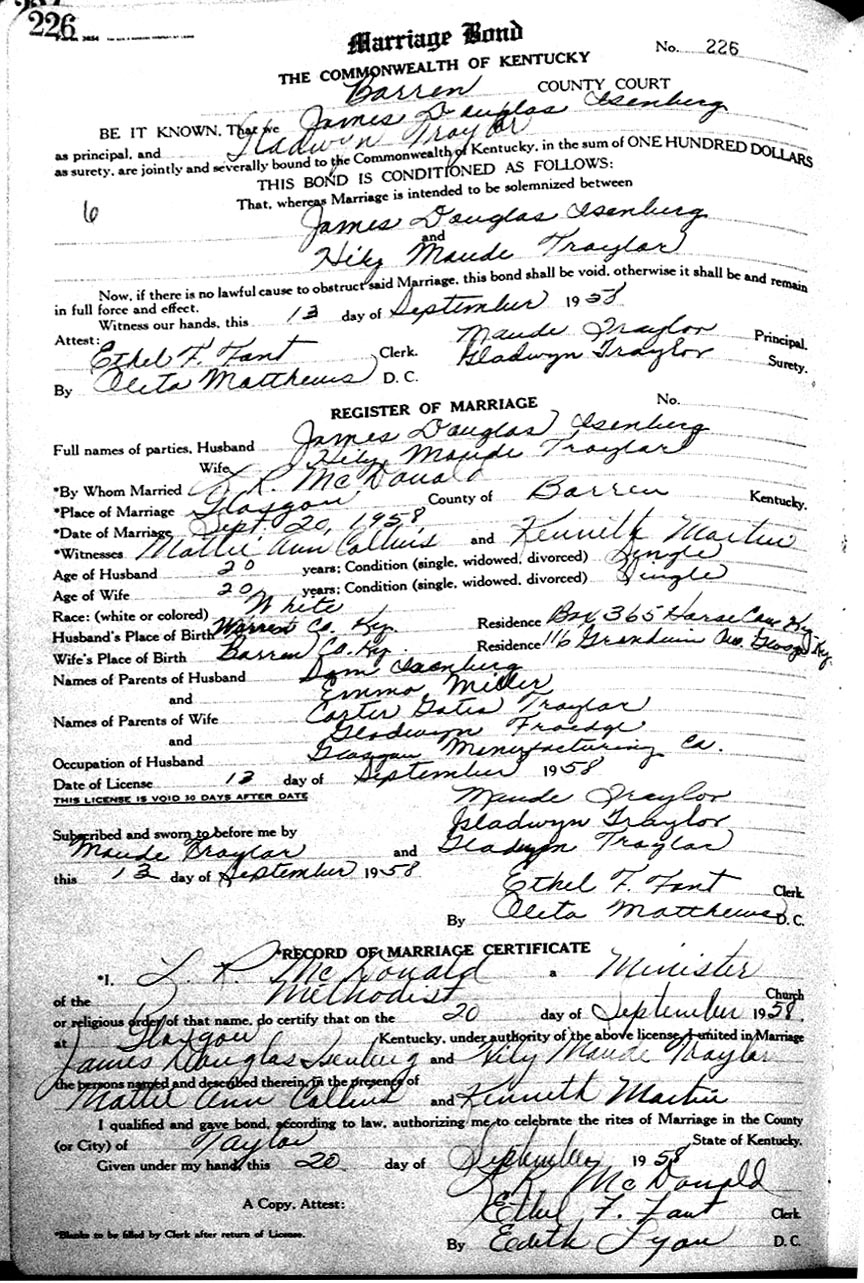 226
Marriage Bond
No. 226
THE COMMONWEALTH OF KENTUCKY
Barren COUNTY COURT
BE IT KNOWN, That we James Douglas Isenberg
as principal, and Gladwyn Traylor
as surety, are jointly and severally bound to the Commonwealth of Kentucky, in the sum of ONE HUNDRED DOLLARS
THIS BOND IS CONDITIONED AS FOLLOWS:
That, whereas Marriage is intended to be solemnized between
6
James Douglas Isenberg
and
Hily Maude Traylor
Now, if there is no lawful cause to obstruct said Marriage, this bond shall be void, otherwise it shall be and remain
in full force and effect.
Witness our hands, this 13 day of September 1958
Attest: Maude Traylor Principal.
Ethel F. Fant Clerk. Gladwyn Traylor Surety.
By Oleta Matthews D. C.
REGISTER OF MARRIAGE No.
Full names of parties, Husband James Douglas Isenberg
Wife Hily Maude Traylor
*By Whom Married L. R. McDonald
*Place of Marriage Glasgow County of Barren Kentucky.
*Date of Marriage Sept. 20, 1958
*Witnesses Mattie Ann Collins and Kenneth Martin
Age of Husband 20 years; Condition (single, widowed, divorced) Single
Age of Wife 20 years; Condition (single, widowed, divorced) Single
Race: (white or colored) White
Husband's Place of Birth Co. Ky. Residence Box 365 Horse Cave Ky.
Wife's Place of Birth Barren Co. Ky. Residence 116 Grandview Ave. Glasgow Ky.
Names of Parents of Husband Isenberg
and Emma Miller
Names of Parents of Wife Carter Gates Traylor
and Gladwyn Froedge
Occupation of Husband Glasgow Manufacturing Co.
Date of License 13 day of September 1958
THIS LICENSE IS VOID 30 DAYS AFTER DATE
Maude Traylor
Gladwyn Traylor
Subscribed and sworn to before me by
Maude Traylor and Gladwyn Traylor
this 13 day of September 1958
Ethel F. Fant Clerk
By Oleta Matthews D. C.
*RECORD OF MARRIAGE CERTIFICATE
*I, L. R. McDonald a Minister
of the Methodist Church
or religious order of that name, do certify that on the 20 day of September 1958.
at Glasgow Kentucky, under authority of the above license, I united in Marriage
James Douglas Isenberg and Hily Maude Traylor
the persons named and described therein, in the presence of
Mattie Ann Collins and Kenneth Martin
I qualified and gave bond, according to law, authorizing me to celebrate the rites of Marriage in the County
(or City) of Taylor State of Kentucky.
Given under my hand, this 20 day of September 1958
L. R. McDonald
A Copy, Attest: Ethel F. Fant Clerk
*Blanks to be filled by Clerk after return of License.
By Edith Lyon D. C.